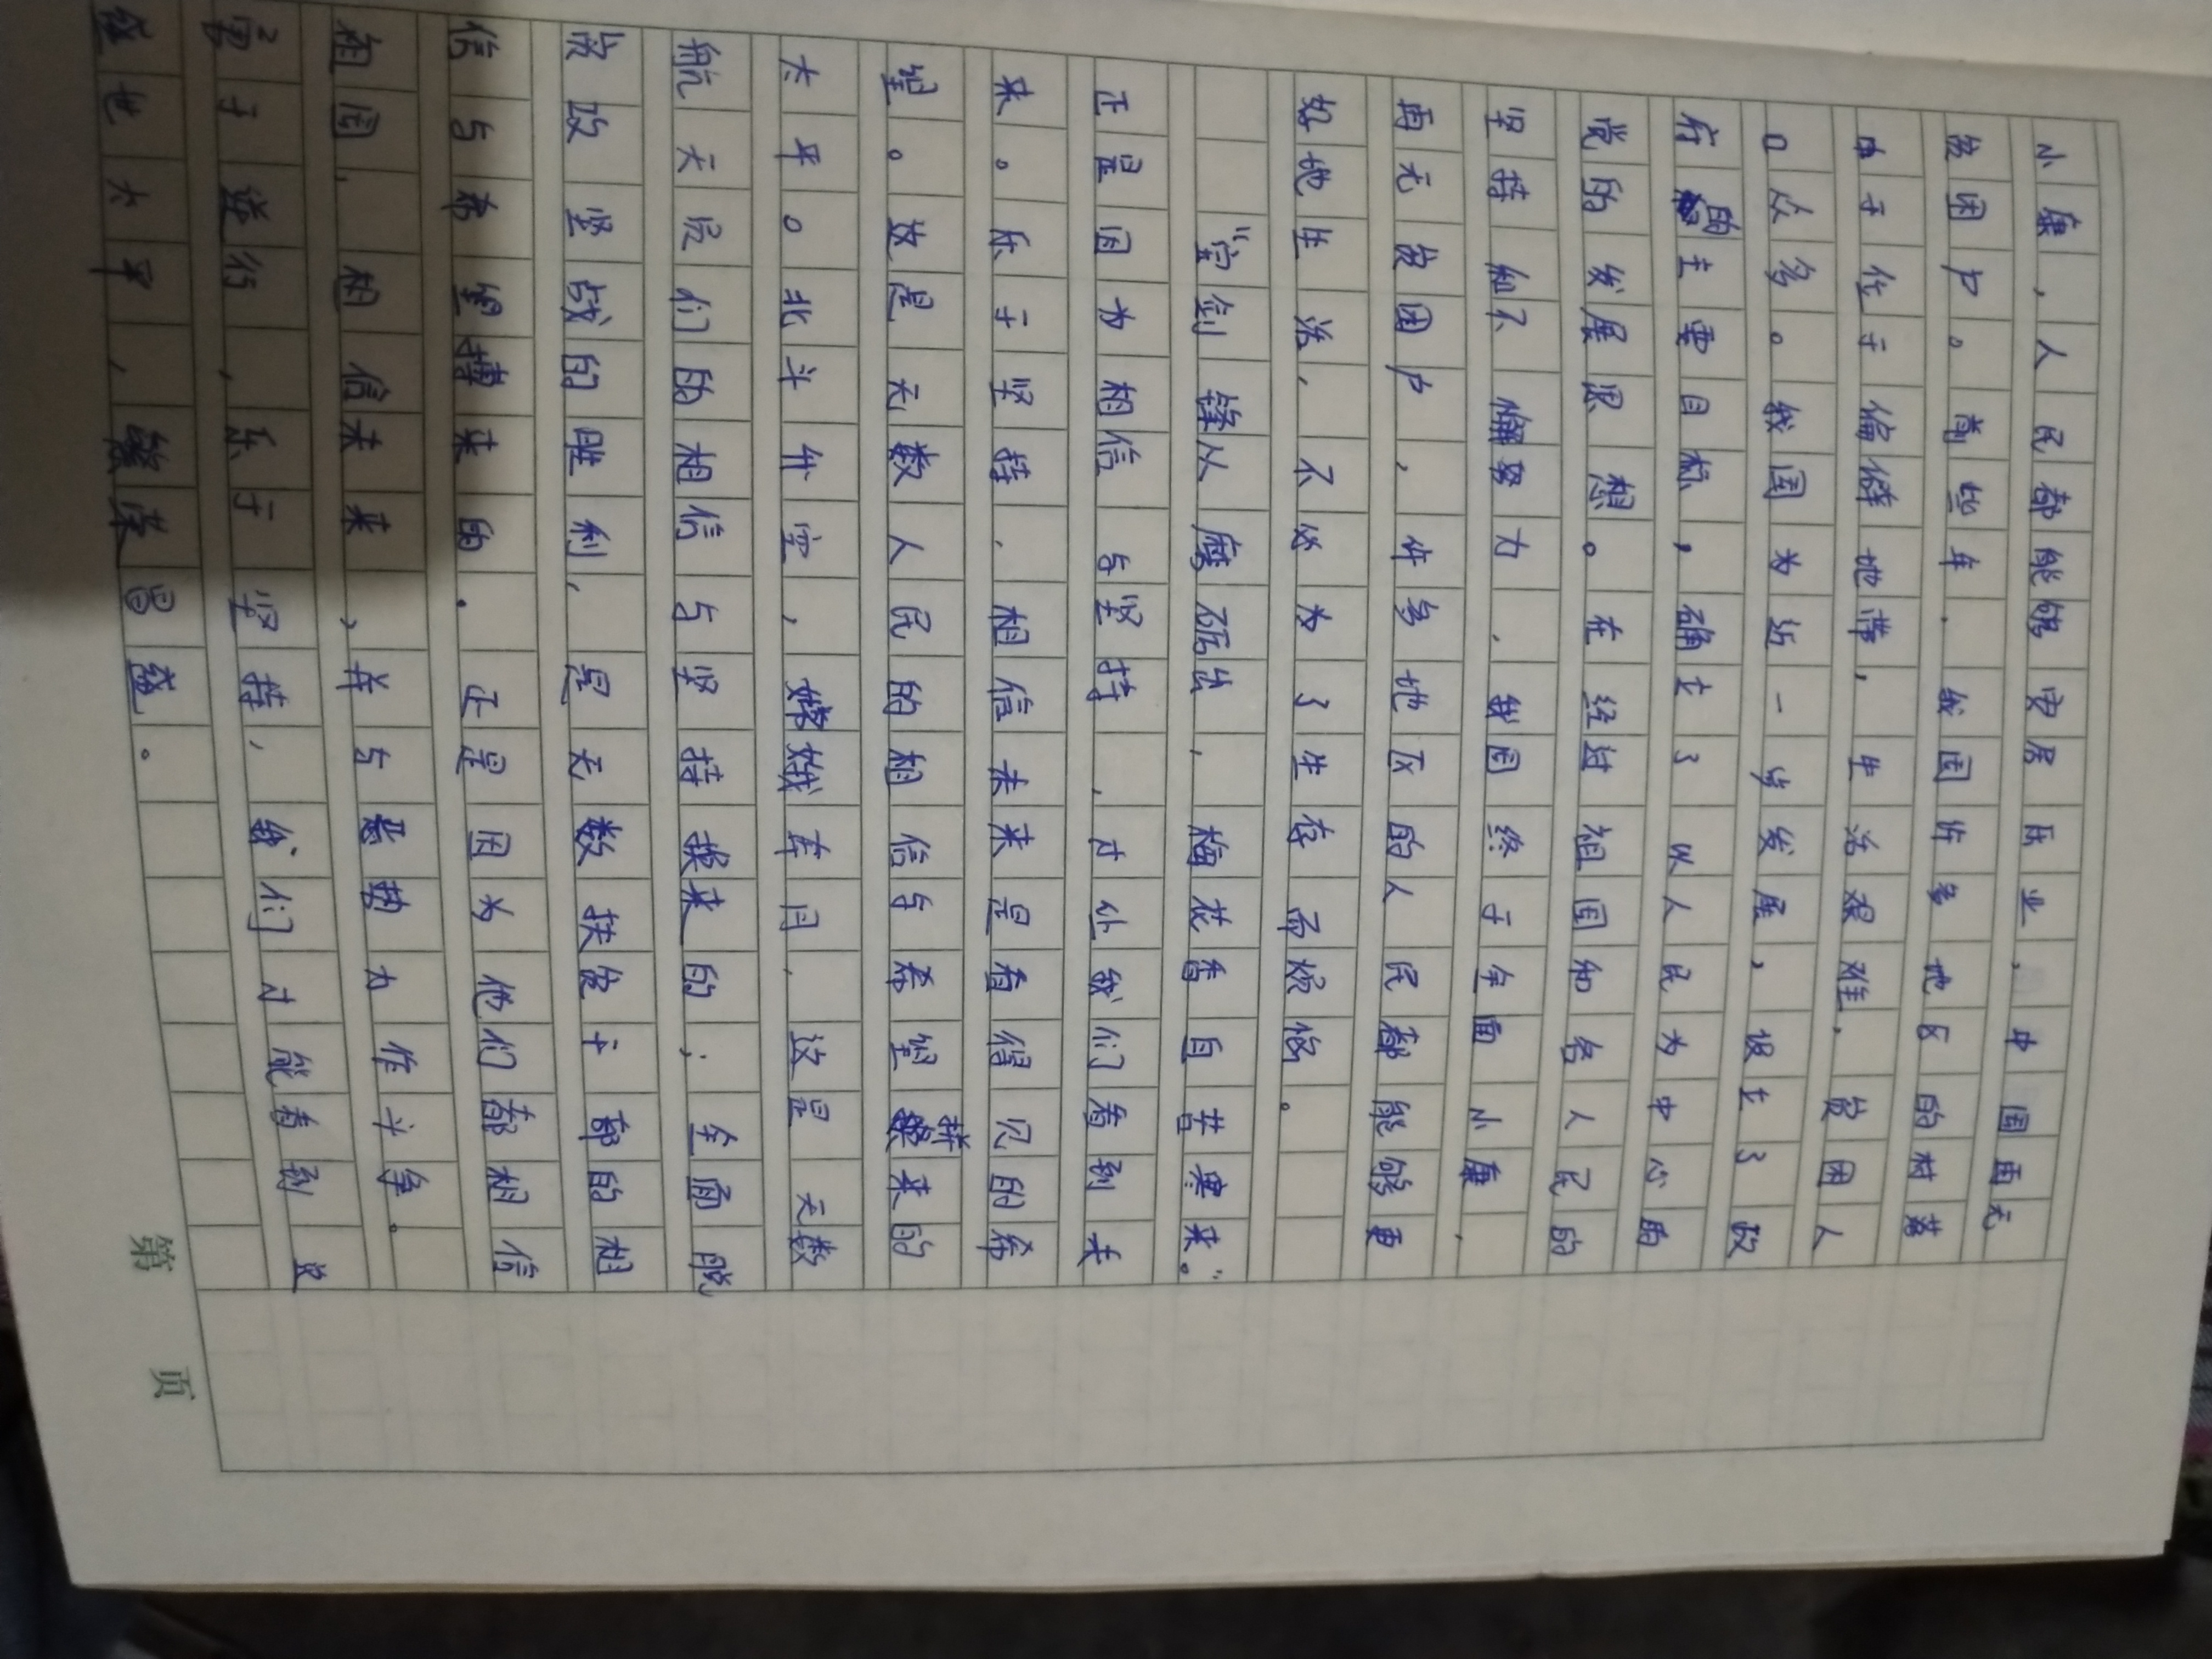 小康，人民都能够安居乐业，中国再无
贫困户。前些年，我国许多地区的村落
由于位于偏僻地带，生活艰难，贫困人
口众多。我国为近一步发展，设立了政
府的主要目标，确立了以人民为中心的
党的发展思想。在经过祖国和各人民的
坚持和不懈努力，我国终于全面小康，
再无贫困户，许多地区的人民都能够更
好地生活，不必为了生存而烦恼。
“宝剑锋从磨砺出，梅花香自苦寒来。”
正是因为相信与坚持，才让我们看到未
来。乐于坚持，相信未来是看得见的希
望。故是无数人民的相信与希望拼来的
太平。北斗升空，嫦娥奔月，这是无数
航天员们的相信与坚持换来的；全面脱
贫攻坚战的胜利，是无数扶贫干部的相
信与希望搏来的。正是因为他们都相信
祖国，相信未来，并与恶势力作斗争。
于逆行，乐于坚持，我们才能看到这
盛世太平，繁荣昌盛。
第 页